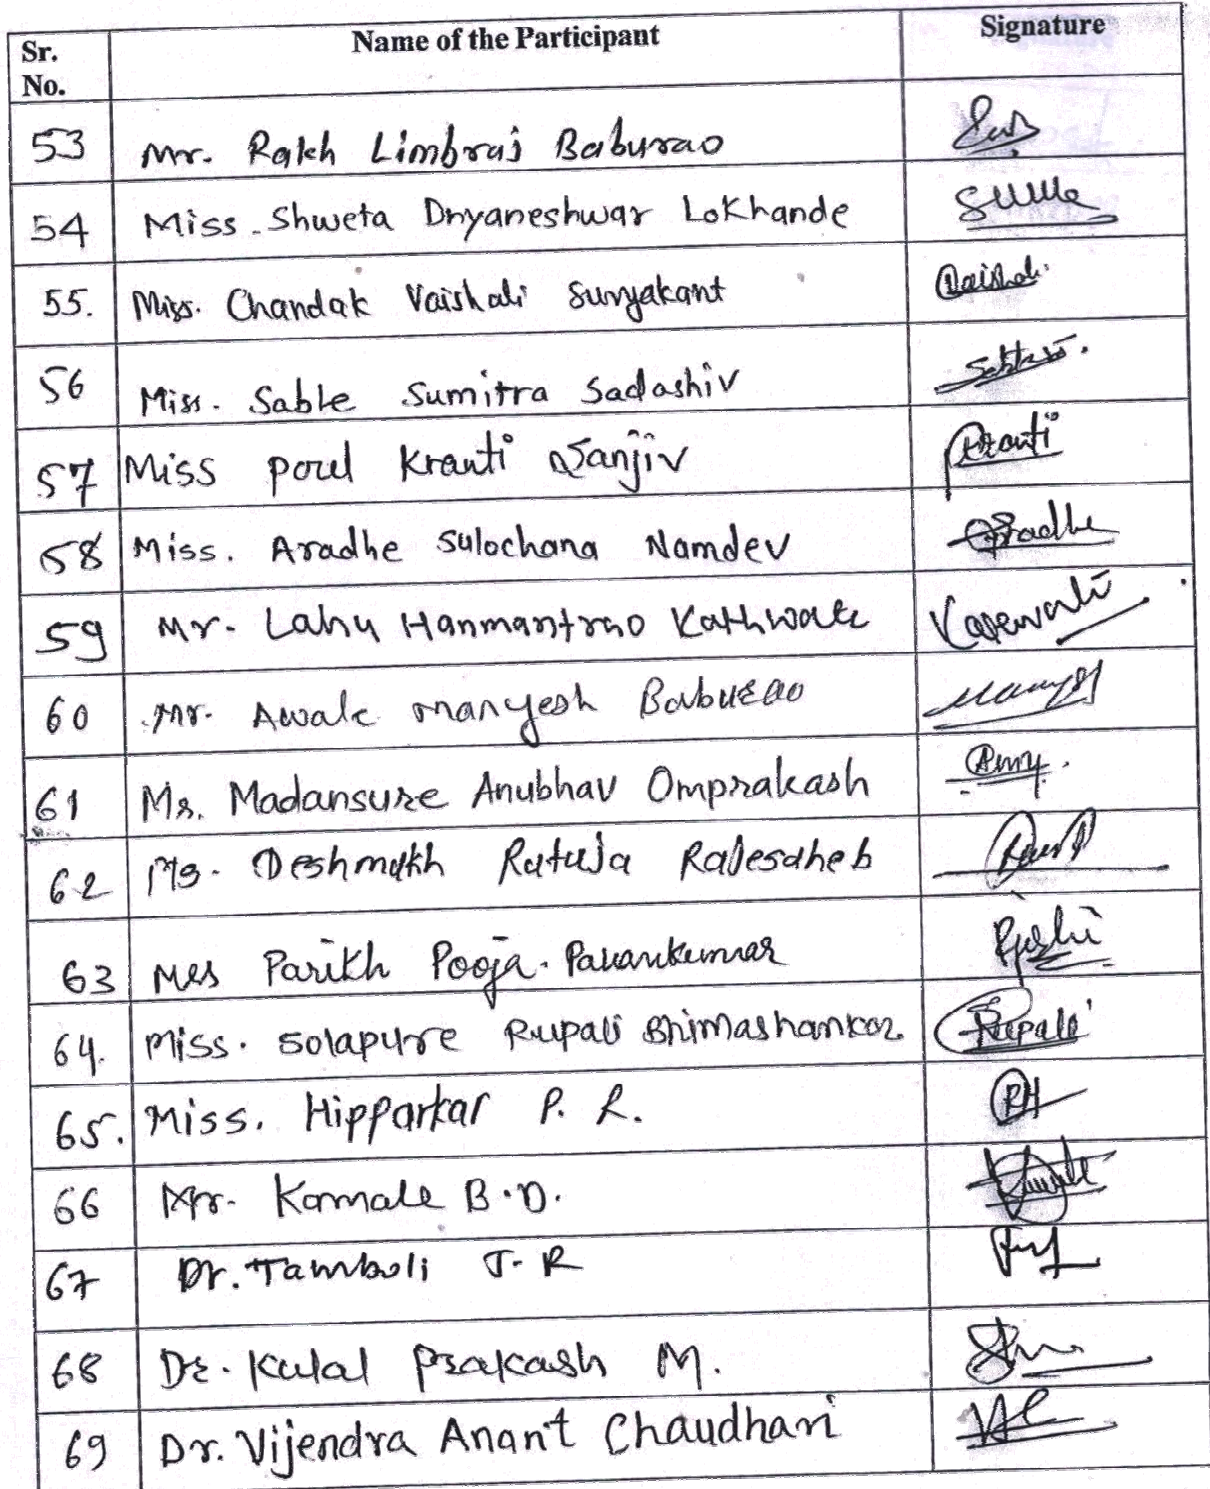 Sr. No. Name of the Participant Signature
53 Mr. Rakh Limbraj Baburao
54 Miss. Shweta Dnyaneshwar Lokhande
55. Miss. Chandak Vaishali Suryakant Vaishali
56 Miss. Sable Sumitra Sadashiv
57 Miss Poul Kranti Sanjiv Kranti
58 Miss. Aradhe Sulochana Namdev Aradhe
59 Mr. Lahu Hanmantrao Kathwate
60 Mr. Awale Mangesh Baburao
61 Mr. Madansure Anubhav Omprakash
62 Ms. Deshmukh Rutuja Rajesaheb
63 Mrs Parikh Pooja. Pavankumar
64. Miss. Solapure Rupali Bhimashankar Rupali
65. Miss. Hipparkar P. R. PH
66 Mr. Kamale B.D.
67 Dr. Tamboli J. R
68 Dr. Kulal Prakash M.
69 Dr. Vijendra Anant Chaudhari